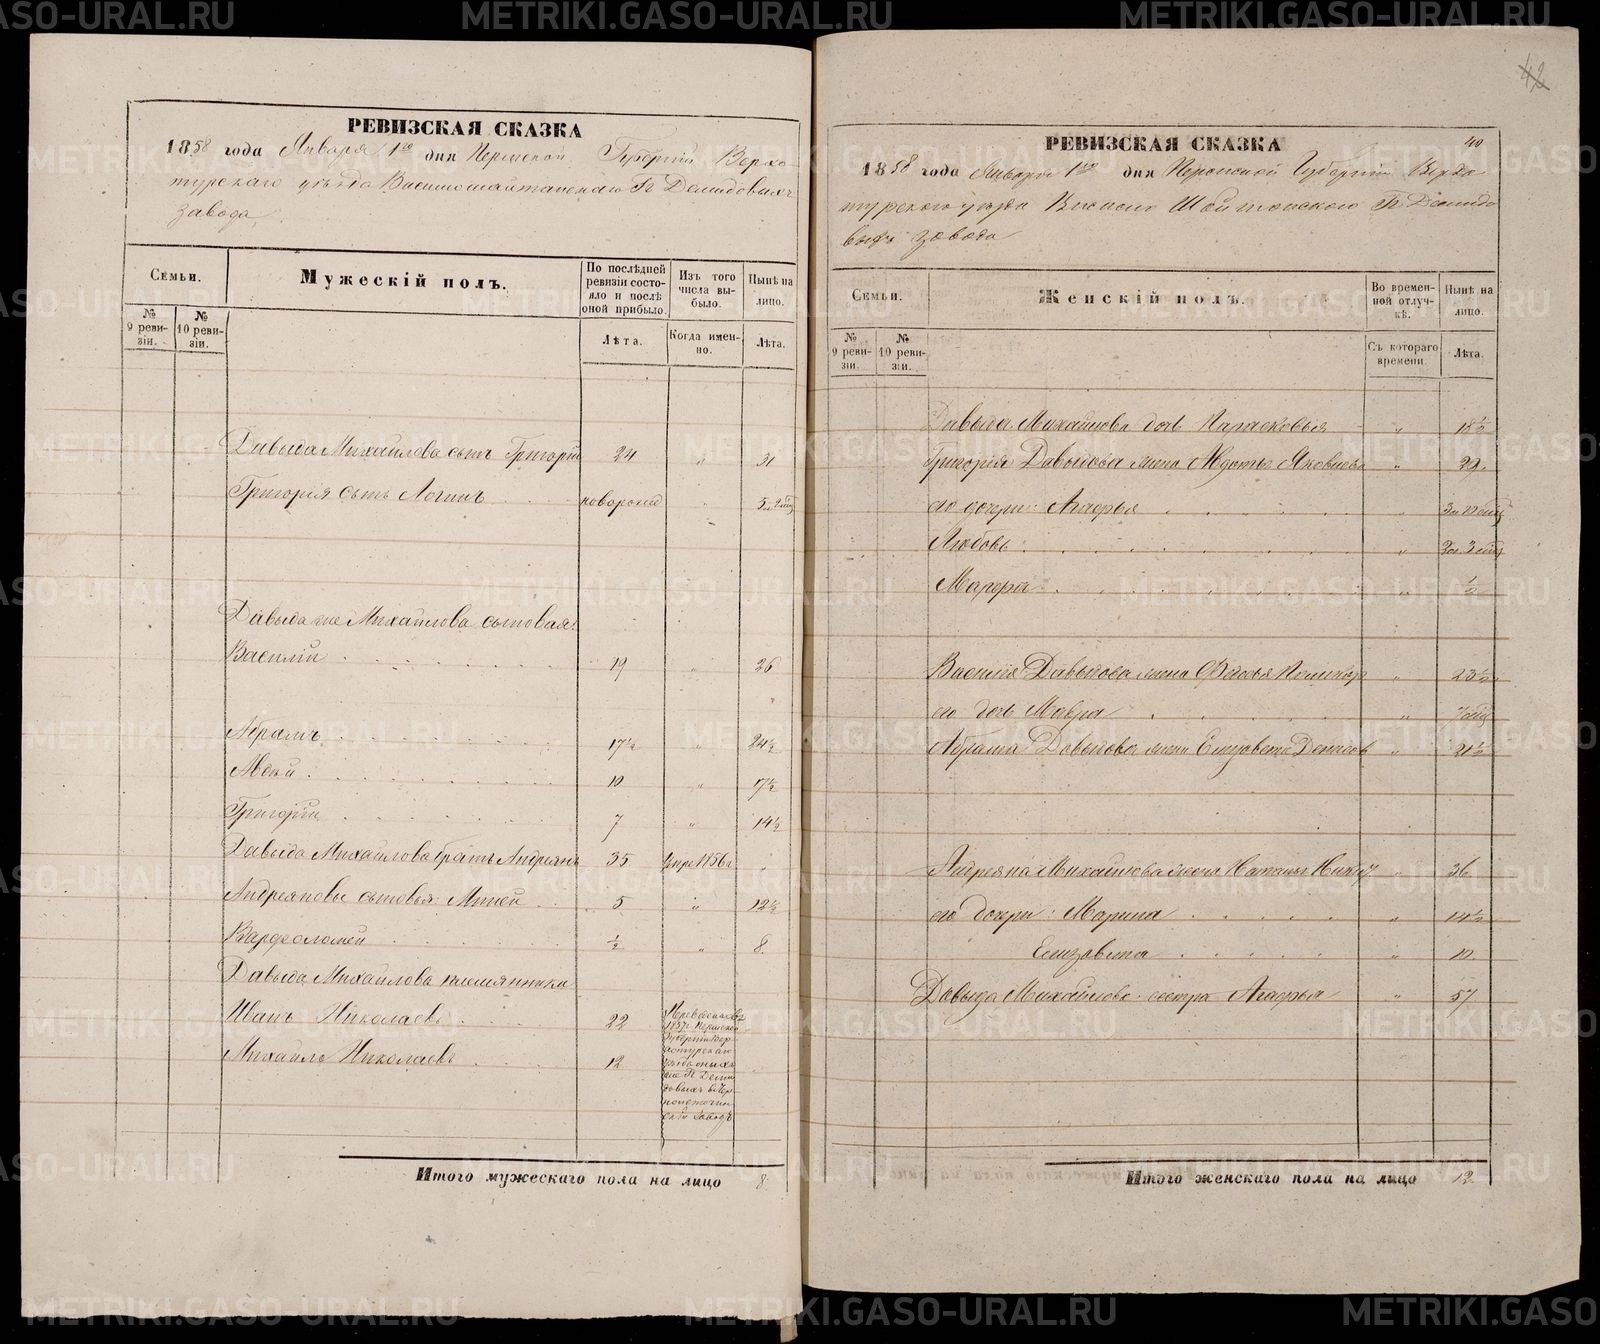 РЕВИЗСКАЯ СКАЗКА
1858 года Января 1го дня Пермской Губернiи Верхо
турскаго уѣзда Висимошайтанскаго Гг. Демидовыхъ
завода
Семьи.
Мужескiй полъ.
По послѣдней ревизiи состояло и послѣ оной прибыло.
Изъ того числа выбыло.
Нынѣ на лицо.
№ 9 ревизiи.
№ 10 ревизiи.
Лѣта.
Когда именно.
Лѣта.
Давыда Михайлова сынъ Григорiй 24 " 31
Григорiя сынъ Логинъ новорожд " 5
Давыда же Михайлова сыновья:
Василiй 19 " 26
Абрамъ 17½ " 24½
Авдѣй 10 " 17½
Григорiй 7 " 14½
Давыда Михайлова братъ Андреянъ 35 1856г
Андреяновы сыновья: Миней 5 " 12½
Варфоломей ½ " 8.
Давыда Михайлова племянники
Иванъ Николаевъ 22
Михайло Николаевъ 12
Переведены въ
1857г. Пермской
Губернiи Вер-
хотурскаго
уѣзда оныхъ
же Гг. Деми
довыхъ въ Чер
ноисточин
скiй заводъ
Итого мужескаго пола на лицо 8.
42
40
РЕВИЗСКАЯ СКАЗКА
1858 года Января 1го дня Пермской Губернiи Верхо
турского уѣзда Висимо Шайтанского Гг. Демидо
выхъ завода
Семьи.
Женскiй полъ.
Во временной отлучкѣ.
Нынѣ на лицо.
№ 9 ревизiи.
№ 10 ревизiи.
Съ котораго времени.
Лѣта.
Давыда Михайлова дочь Парасковья " 18½
Григорiя Давыдова жена Авдотья Яковлева "
его дочери: Агафья "
Любовь "
Марфа " ½
Василiя Давыдова жена "
его дочь Мавра " 7 мѣц
Абрама Давыдова жена Елизавета Денисов " 21½
Андреяна Михайлова жена Наталья " 36
его дочери: Марина " 14½
Елизавета " 10
Давыда Михайлова сестра Агафья " 57
Итого женскаго пола на лицо 12.
METRIKI.GASO-URAL.RU